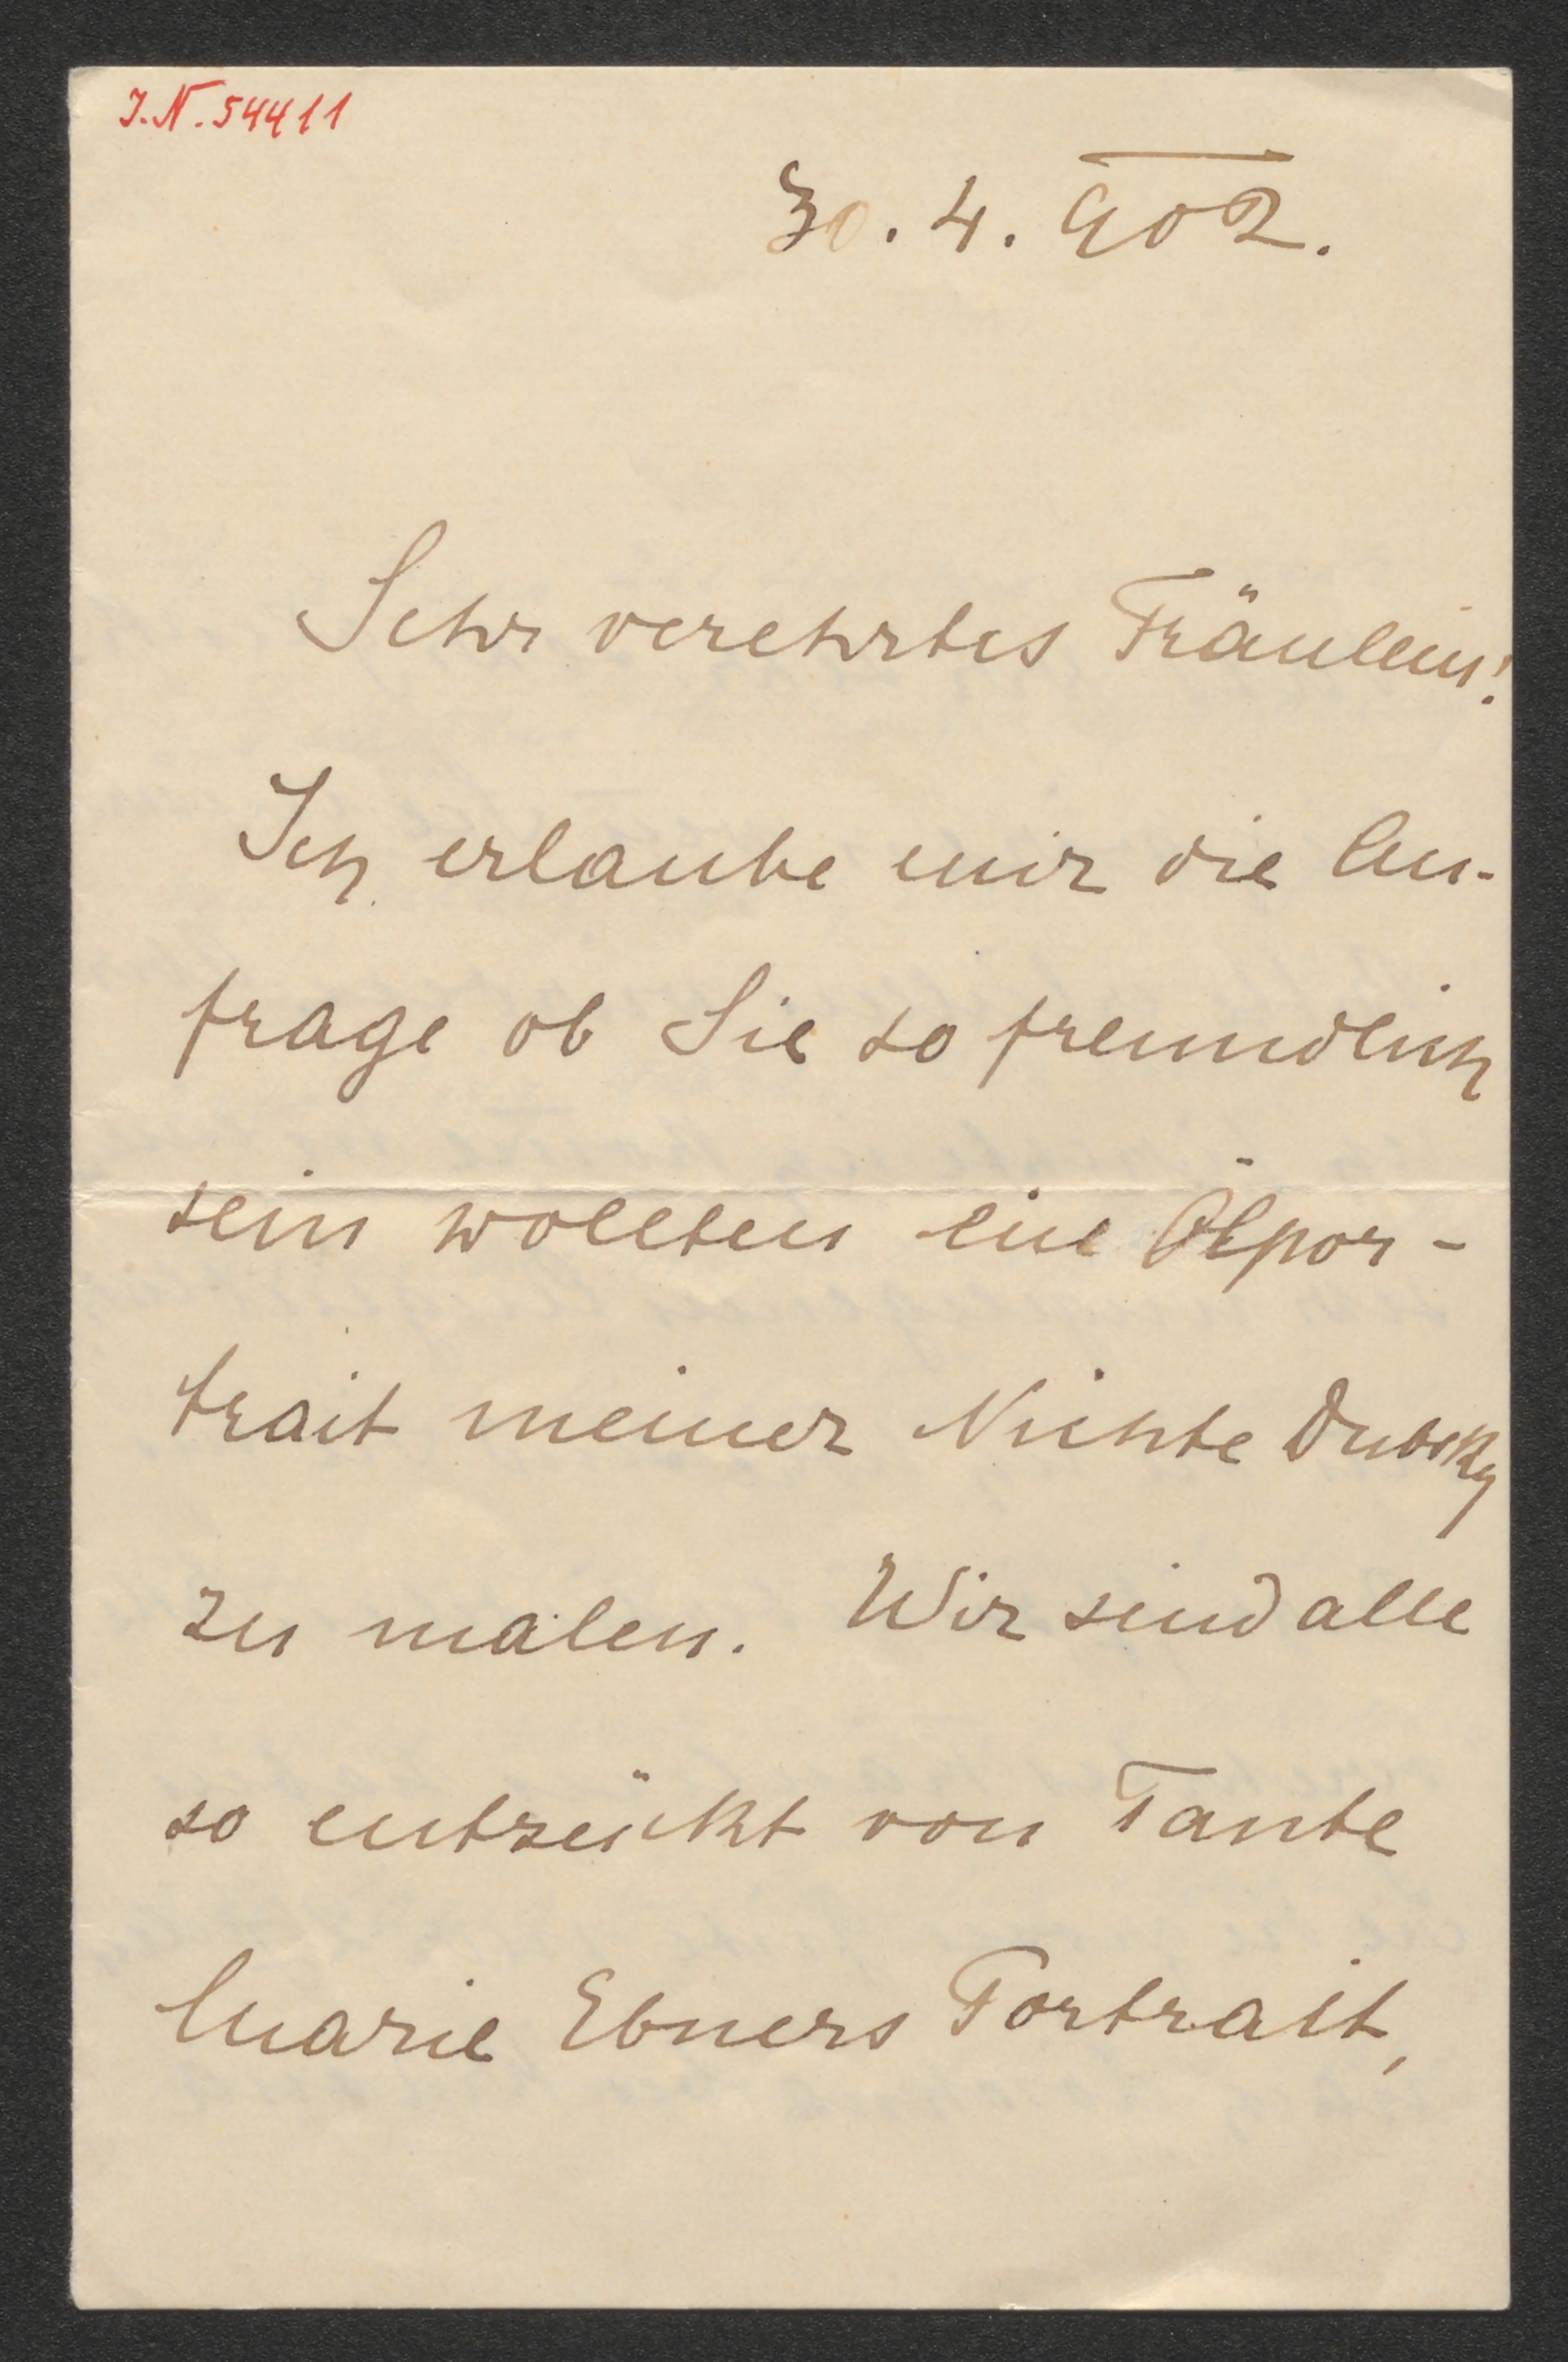 J.N. 54411
30. 4. 902.
Sehr verehrtes Fräulein!
Ich erlaube mir die An-
frage ob Sie so freundlich
sein wollten eine Ölpor-
trait meiner Nichte Dubsky
zu malen. Wir sind alle
so entzückt von Tante
Marie Ebners Portrait,